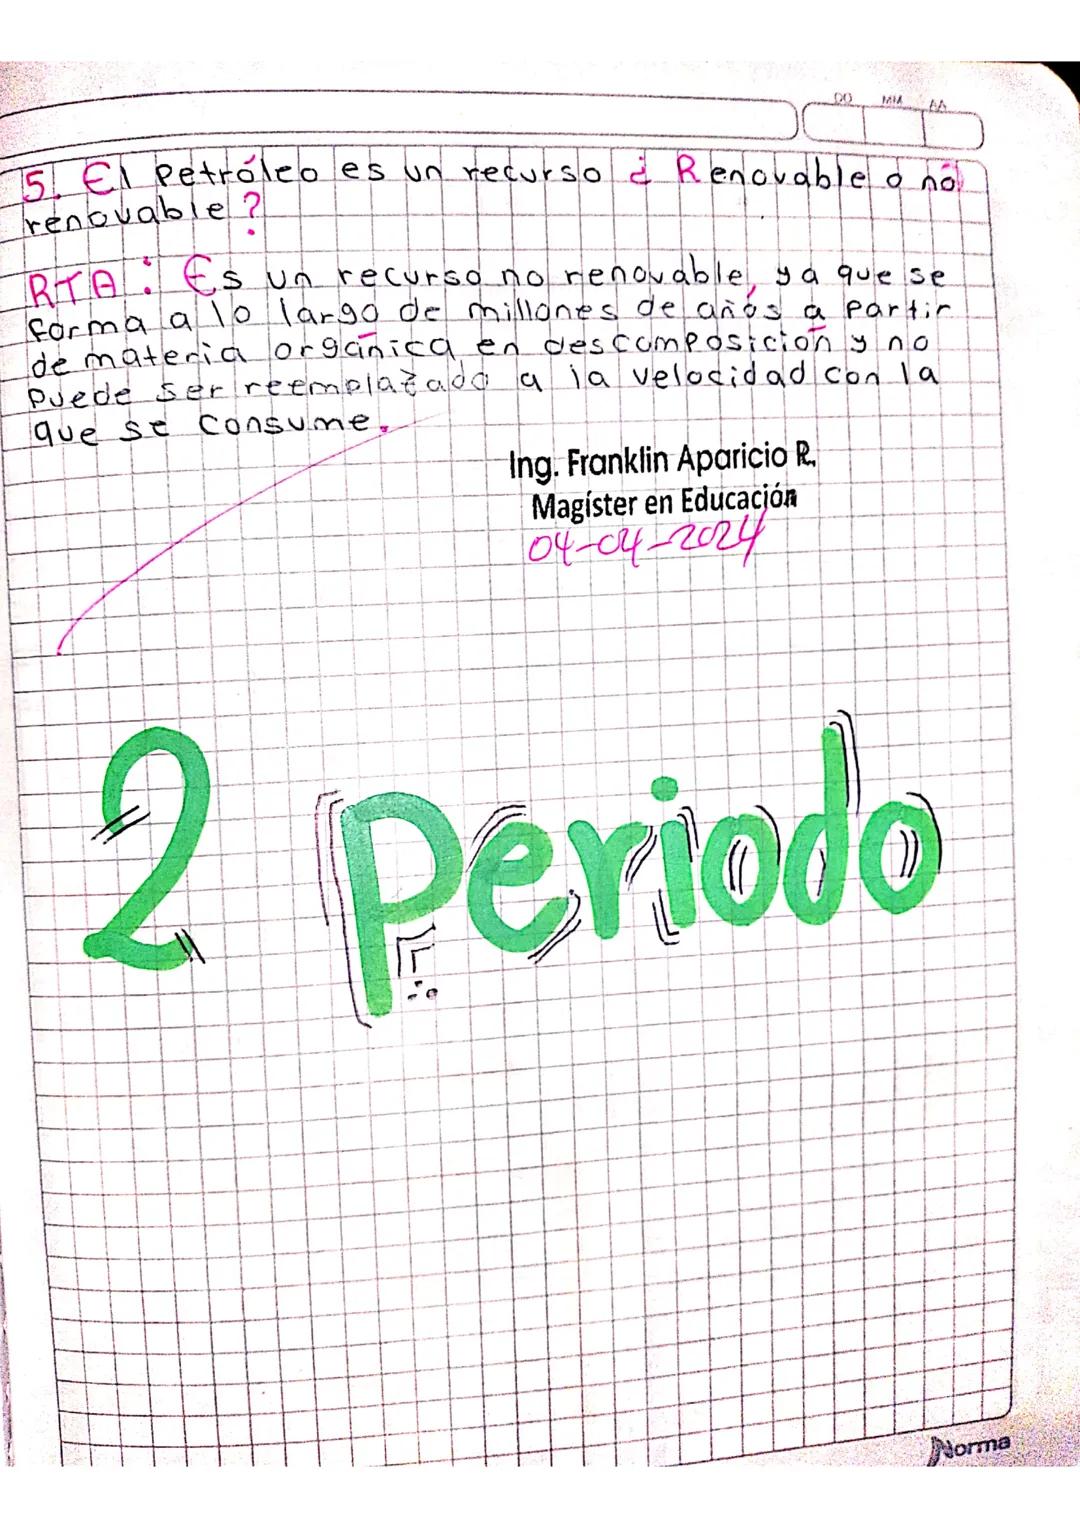 DD MM AA
5. El Petróleo es un recurso ¿ Renovable o nó
renovable ?
RTA : Es un recurso no renovable, ya que se
forma a lo largo de millones de años a partir
de materia orgánica en descomposición y no
puede ser reemplazado a la velocidad con la
que se consume.
Ing. Franklin Aparicio R.
Magíster en Educación
04-04-2024
2 Periodo
Norma